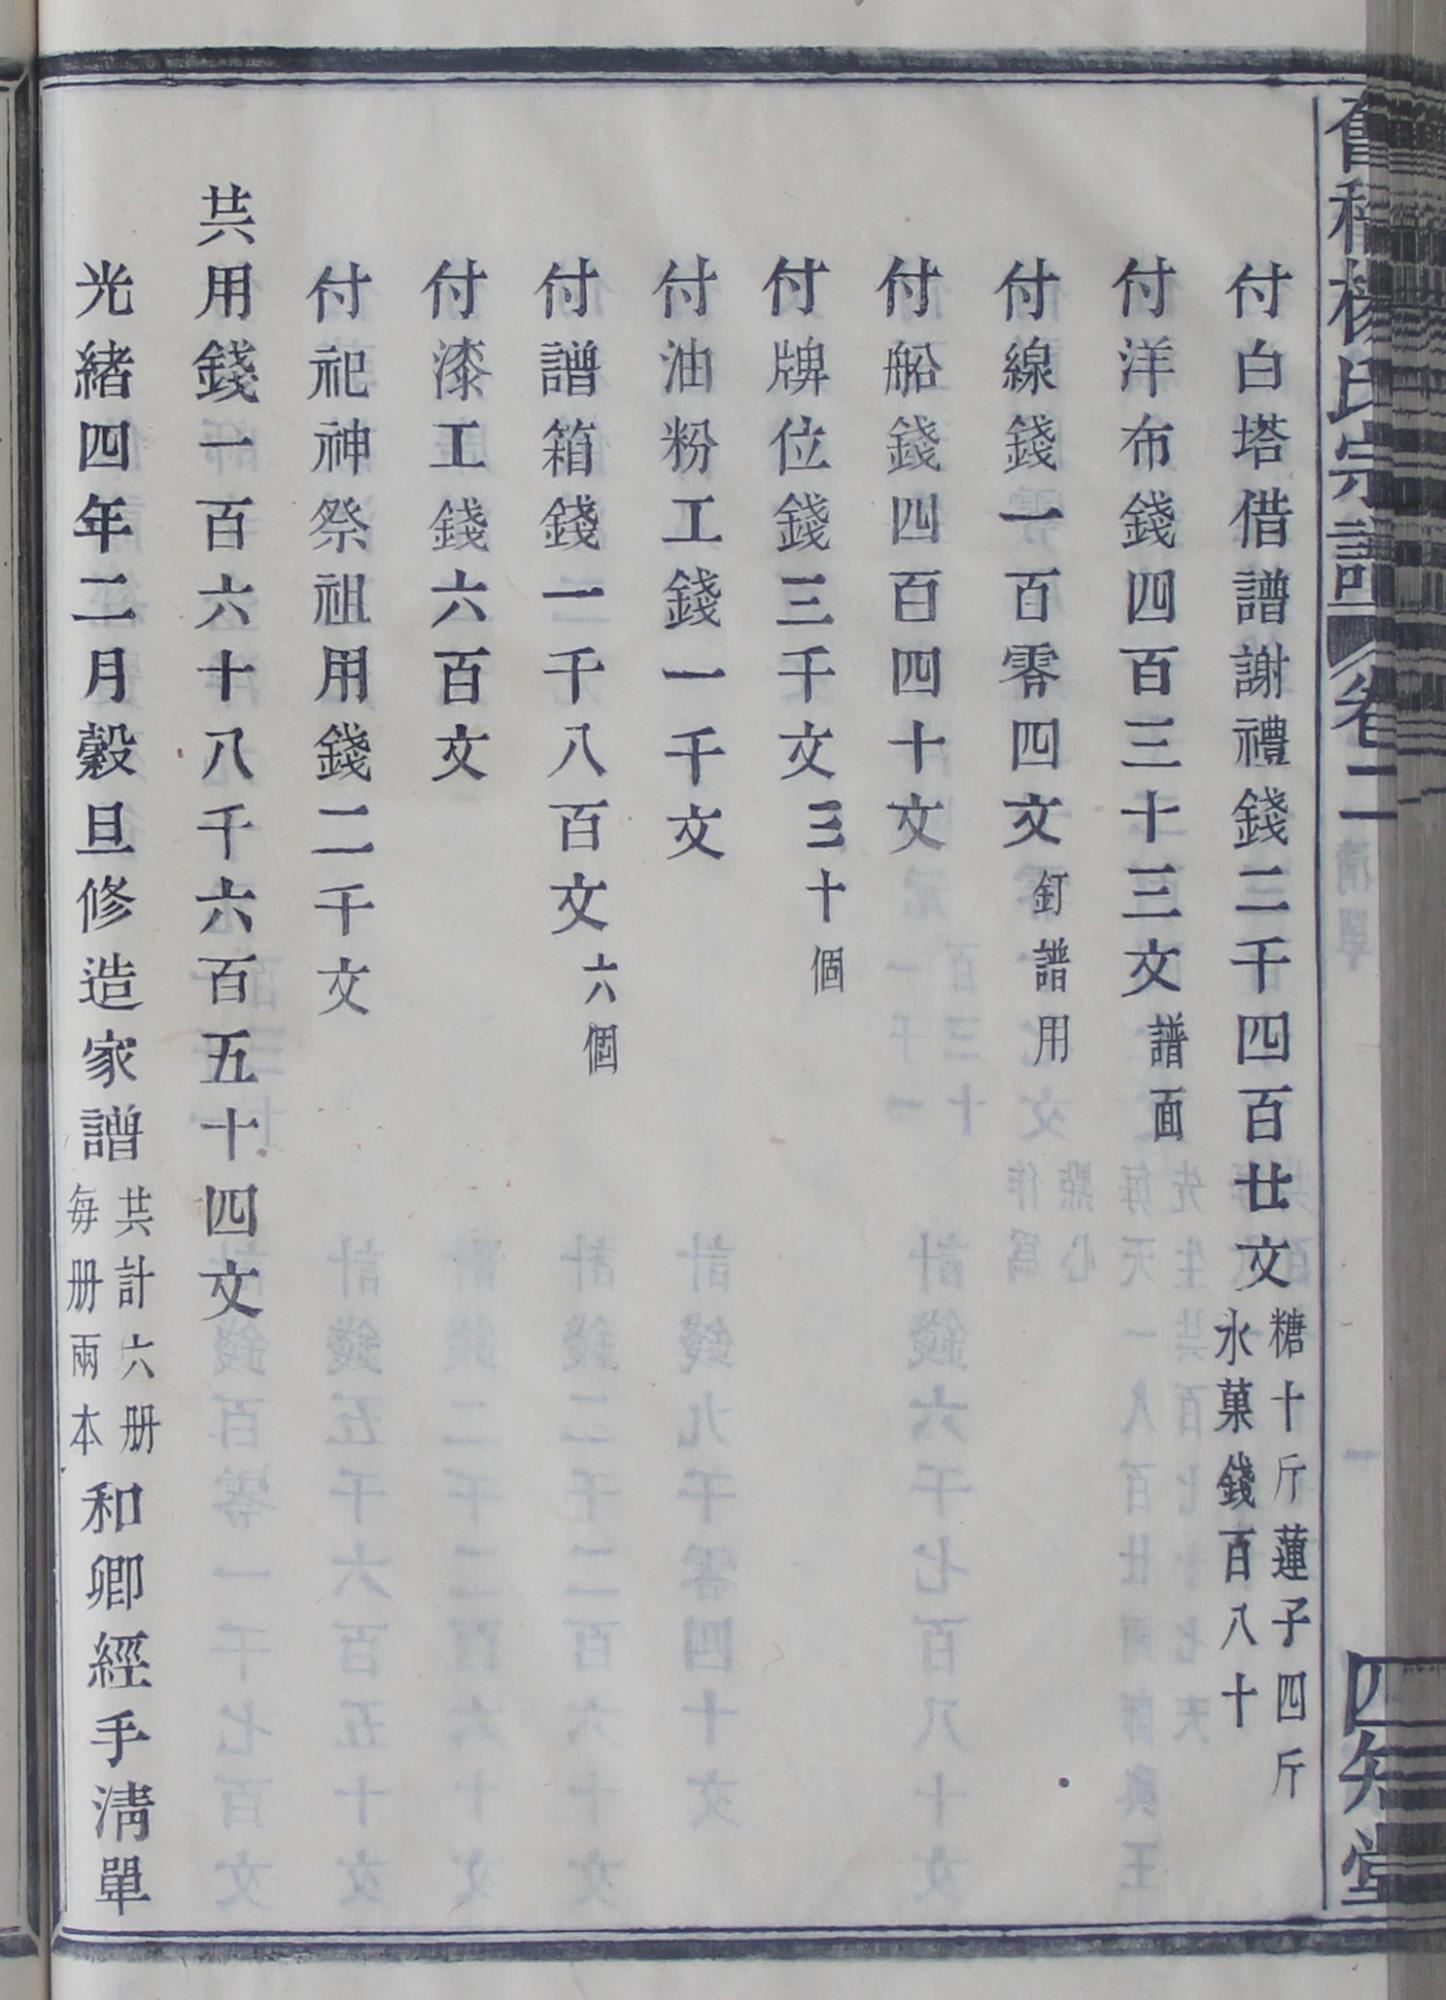 舊
楊氏宗譜 卷二 四知堂
付白塔借譜謝禮錢二千四百廿文 糖十斤蓮子四斤
水菓錢百八十
付洋布錢四百三十三文 譜面
付線錢一百零四文 釘譜用
付船錢四百四十文
付牌位錢三千文 三十個
付油粉工錢一千文
付譜箱錢一千八百文 六個
付漆工錢六百文
付祀神祭祖用錢二千文
共用錢一百六十八千六百五十四文
光緒四年二月穀旦修造家譜 共計六册
每册兩本 和卿經手淸單